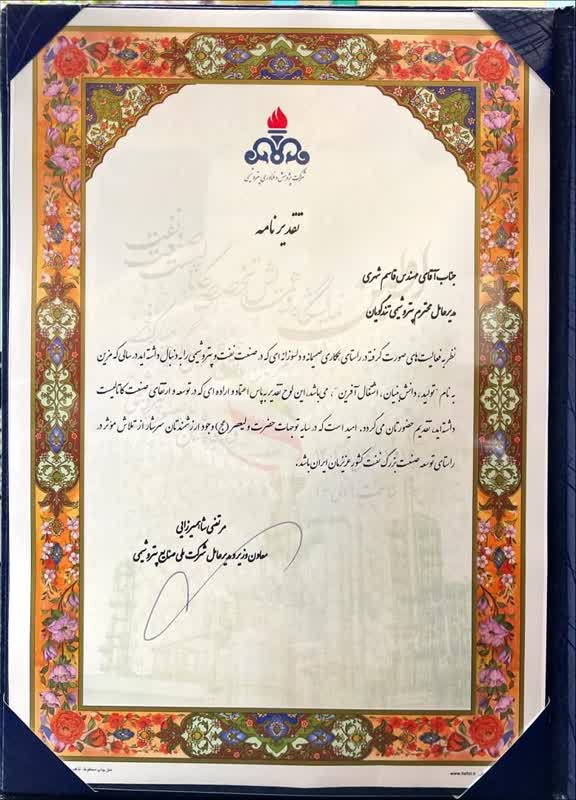 شرکت پژوهش و فناوری پتروشیمی
تقدیرنامه
جناب آقای مهندس قاسم شهری
مدیرعامل محترم پتروشیمی تندگویان
نظر به فعالیت‌های صورت گرفته در راستای همکاری صمیمانه و دلسوزانه ای که در صنعت نفت و پتروشیمی را به دنبال داشته اید در سالی که مزین
به نام "تولید، دانش بنیان، اشتغال آفرین"، می‌باشد، این لوح تقدیر به پاس اعتماد و اراده ای که در توسعه و ارتقای صنعت کاتالیست
داشته اید، تقدیم حضورتان می گردد. امید است که در سایه توجهات حضرت ولیعصر (عج) وجود ارزشمندتان سرشار از تلاش موثر در
راستای توسعه صنعت بزرگ نفت کشور عزیزمان ایران باشد.
مرتضی شاهمیرزایی
معاون وزیر و مدیرعامل شرکت ملی صنایع پتروشیمی